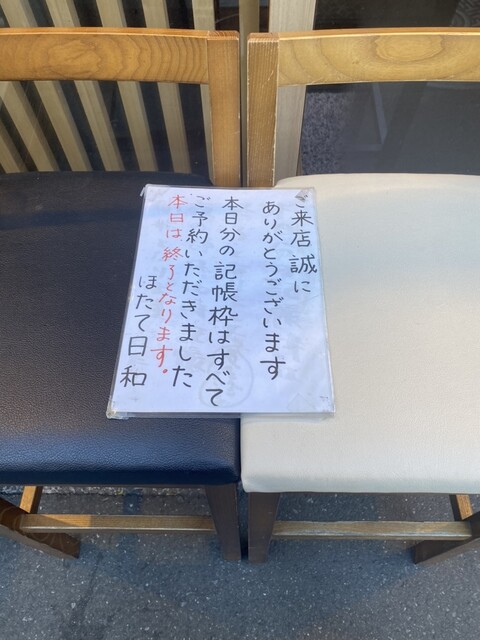 ご来店誠に
ありがとうございます
本日分の記帳枠はすべて
ご予約いただきました
本日は終了となります。
ほたて日和